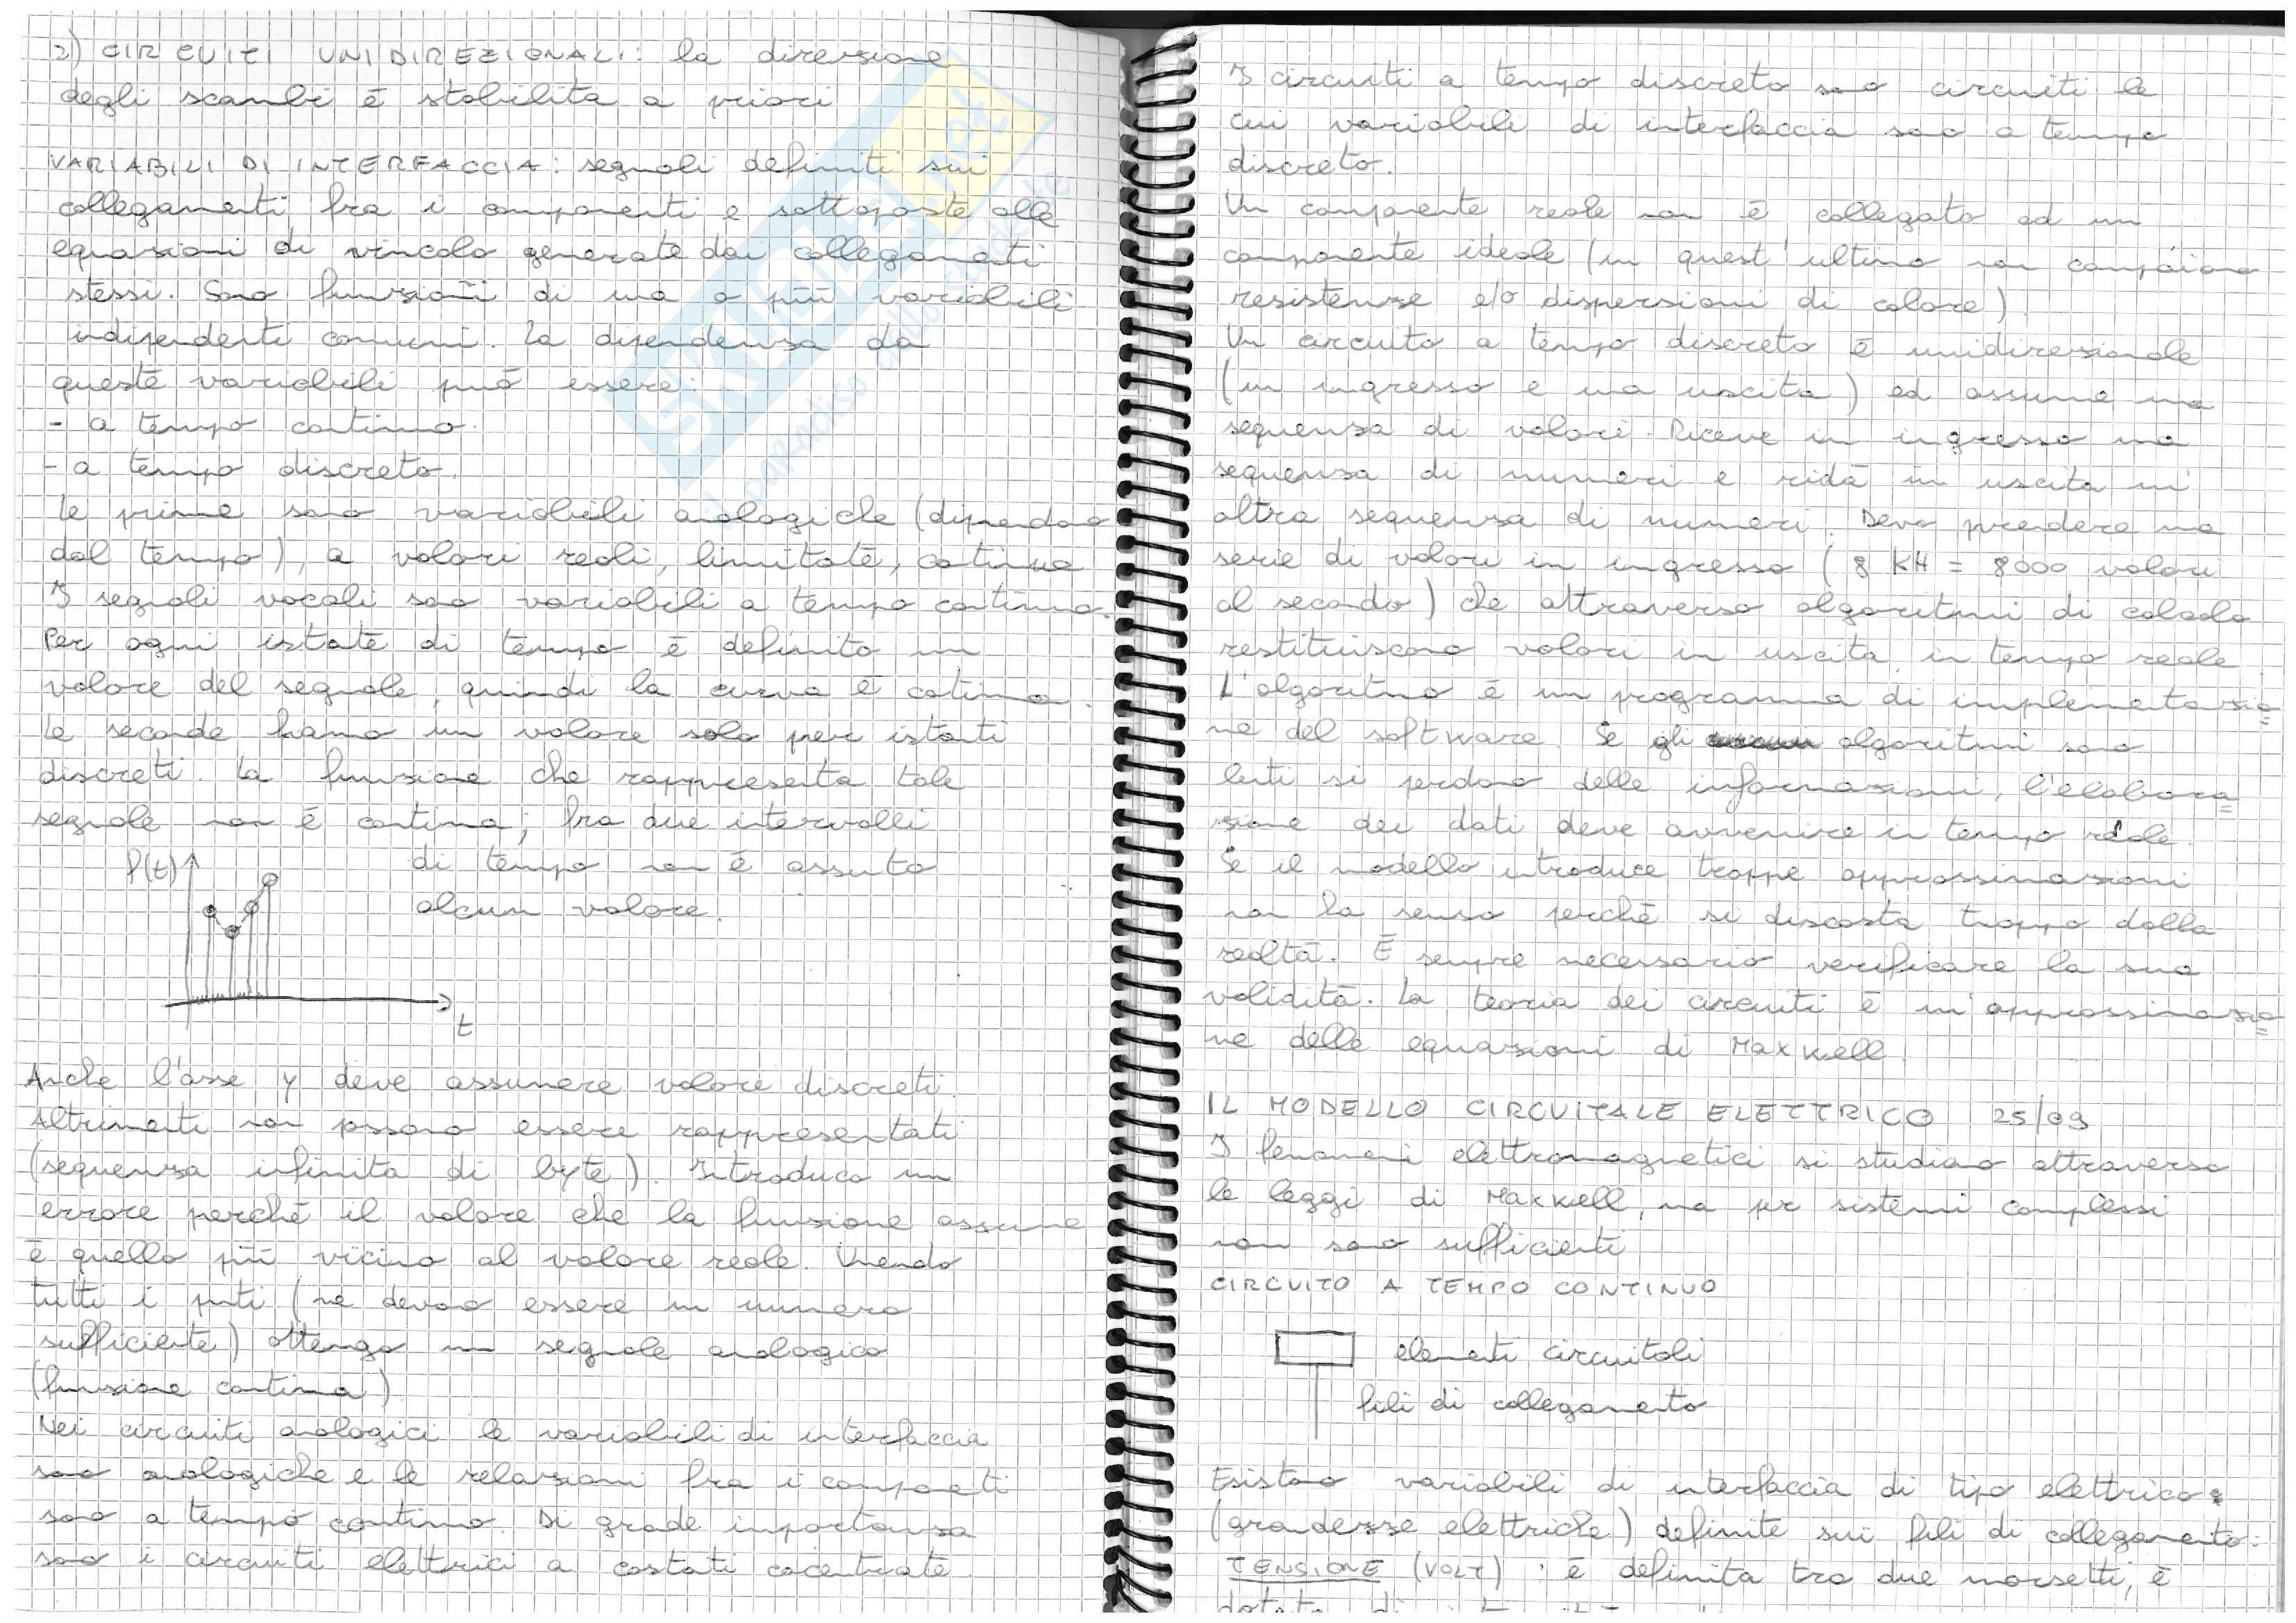 2) CIRCUITI UNIDIREZIONALI: la direzione
degli scambi è stabilita a priori
VARIABILI DI INTERFACCIA: segnali definiti sui
collegamenti fra i componenti e sottoposte alle
equazioni di vincolo generate dai collegamenti
stessi. Sono funzioni di una o più variabili
indipendenti comuni. La dipendenza da
queste variabili può essere:
- a tempo continuo.
- a tempo discreto.
Le prime sono variabili analogiche (dipendono
dal tempo), a valori reali, limitate, continue
I segnali vocali sono variabili a tempo continuo.
Per ogni istante di tempo è definito un
valore del segnale, quindi la curva è continua.
Le seconde hanno un valore solo per istanti
discreti. La funzione che rappresenta tale
segnale non è continua; fra due intervalli
di tempo non è assunto
alcun valore.
f(t)
t
Anche l'asse y deve assumere valore discreti.
Altrimenti non possono essere rappresentati
(sequenza infinita di byte). Introduco un
errore perché il valore che la funzione assume
è quello più vicino al valore reale. Unendo
tutti i punti (ne devono essere in numero
sufficiente) ottengo un segnale analogico
(funzione continua)
Nei circuiti analogici le variabili di interfaccia
sono analogiche e le relazioni fra i componenti
sono a tempo continuo. Di grande importanza
sono i circuiti elettrici a costanti concentrate.
I circuiti a tempo discreto sono circuiti le
cui variabili di interfaccia sono a tempo
discreto.
Un componente reale non è collegato ad un
componente ideale (in quest'ultimo non compaiono
resistenze e/o dispersioni di calore)
Un circuito a tempo discreto è unidirezionale
(un ingresso e una uscita) ed assume una
sequenza di valori. Riceve in ingresso una
sequenza di numeri e ridà in uscita un'
altra sequenza di numeri. Devo prendere una
serie di valori in ingresso (8 KH = 8000 valori
al secondo) che attraverso algoritmi di calcolo
restituiscono valori in uscita, in tempo reale
L'algoritmo è un programma di implementazio=
ne del software. Se gli algoritmi sono
lenti si perdono delle informazioni, l'elabora=
zione dei dati deve avvenire in tempo reale.
Se il modello introduce troppe approssimazioni
non ha senso perché si discosta troppo dalla
realtà. È sempre necessario verificare la sua
validità. La teoria dei circuiti è un'approssimazio=
ne delle equazioni di Maxwell.
IL MODELLO CIRCUITALE ELETTRICO 25/09
I fenomeni elettromagnetici si studiano attraverso
le leggi di Maxwell, ma per sistemi complessi
non sono sufficienti
CIRCUITO A TEMPO CONTINUO
elementi circuitali
fili di collegamento
Esistono variabili di interfaccia di tipo elettrico
(grandezze elettriche) definite sui fili di collegamento:
TENSIONE (VOLT): è definita tra due morsetti, è
SKUOLA.net